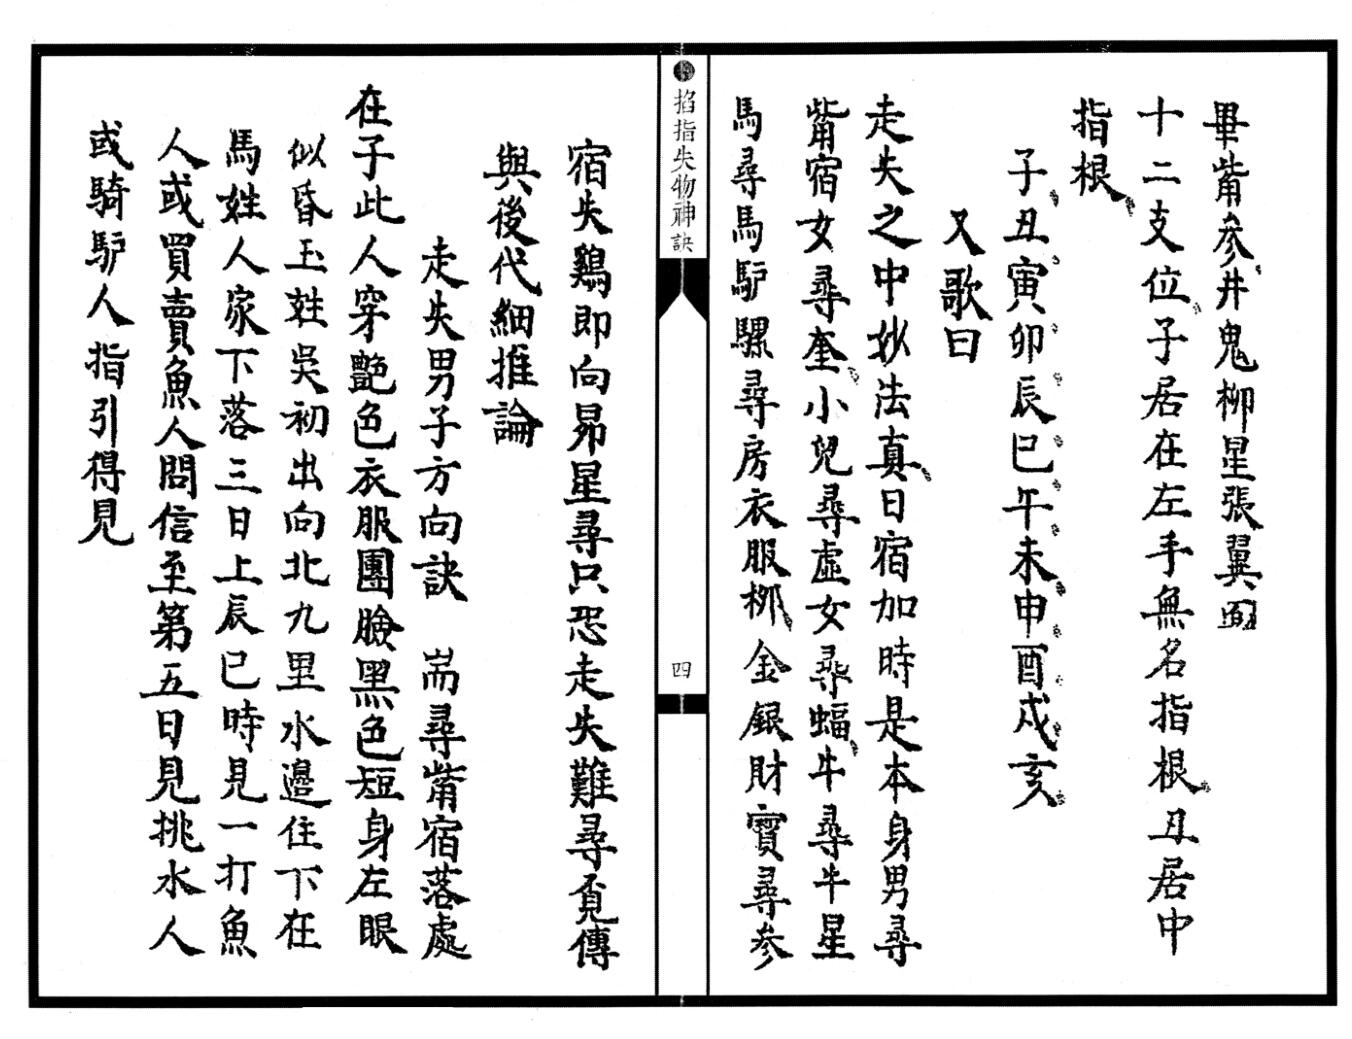 畢觜參井鬼柳星張翼
十二支位子居在左手無名指根丑居中
指根
子丑寅卯辰巳午未申酉戌亥
又歌曰
走失之中妙法真日宿加時是本身男尋
觜宿女尋奎小兒尋虛女尋蝠牛尋牛星
馬尋馬馿騾尋房衣服柳金銀財寶尋參
掐指失物神訣
四
宿失鷄即向昴星尋只恐走失難尋覓傳
與後代細推論
走失男子方向訣 耑尋觜宿落處
在子此人穿艷色衣服團臉黑色短身左眼
似昏玉姓吳初出向北九里水邊住下在
馬姓人家下落三日上辰巳時見一打魚
人或買賣魚人問信至第五日見挑水人
或騎馿人指引得見